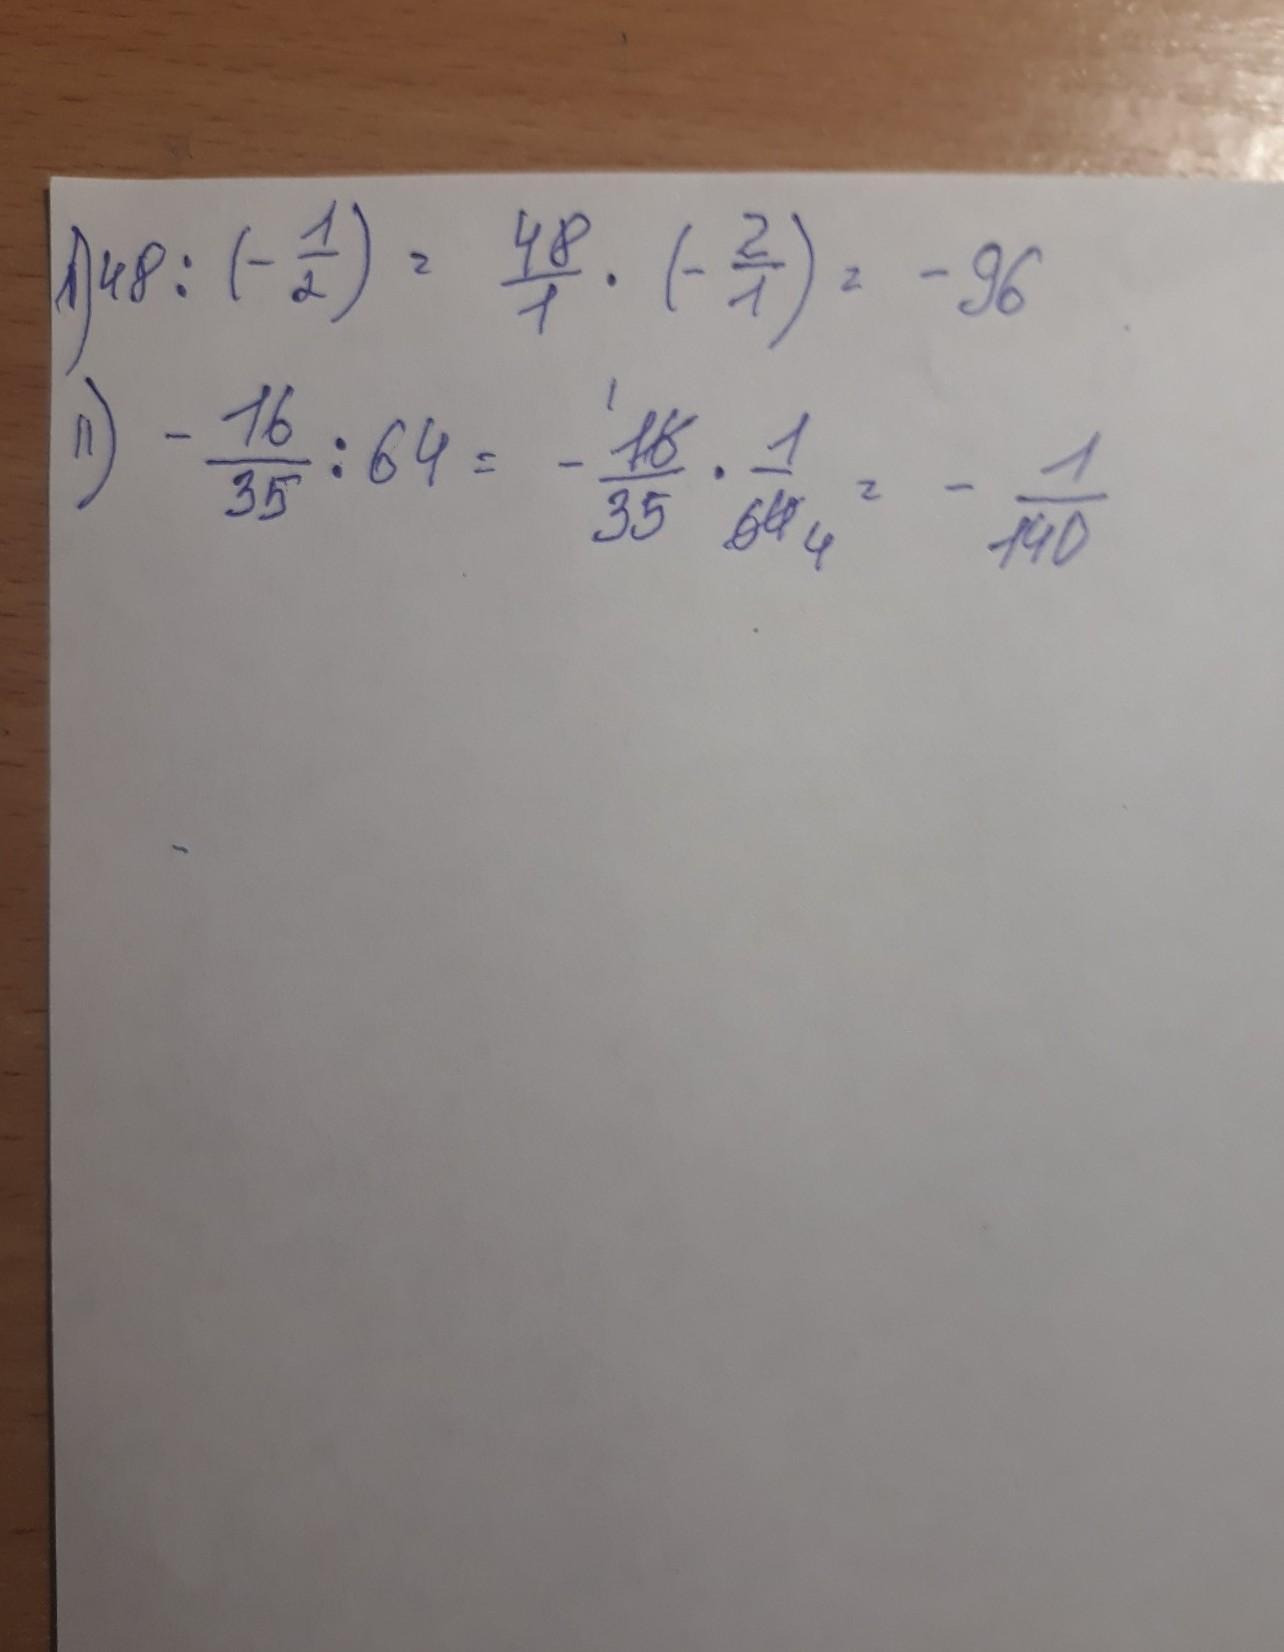 л) 48 : (- 1/2) = 48/1 · (- 2/1) = - 96
п) - 16/35 : 64 = - 16/35 1 · 1/64 4 = - 1/140